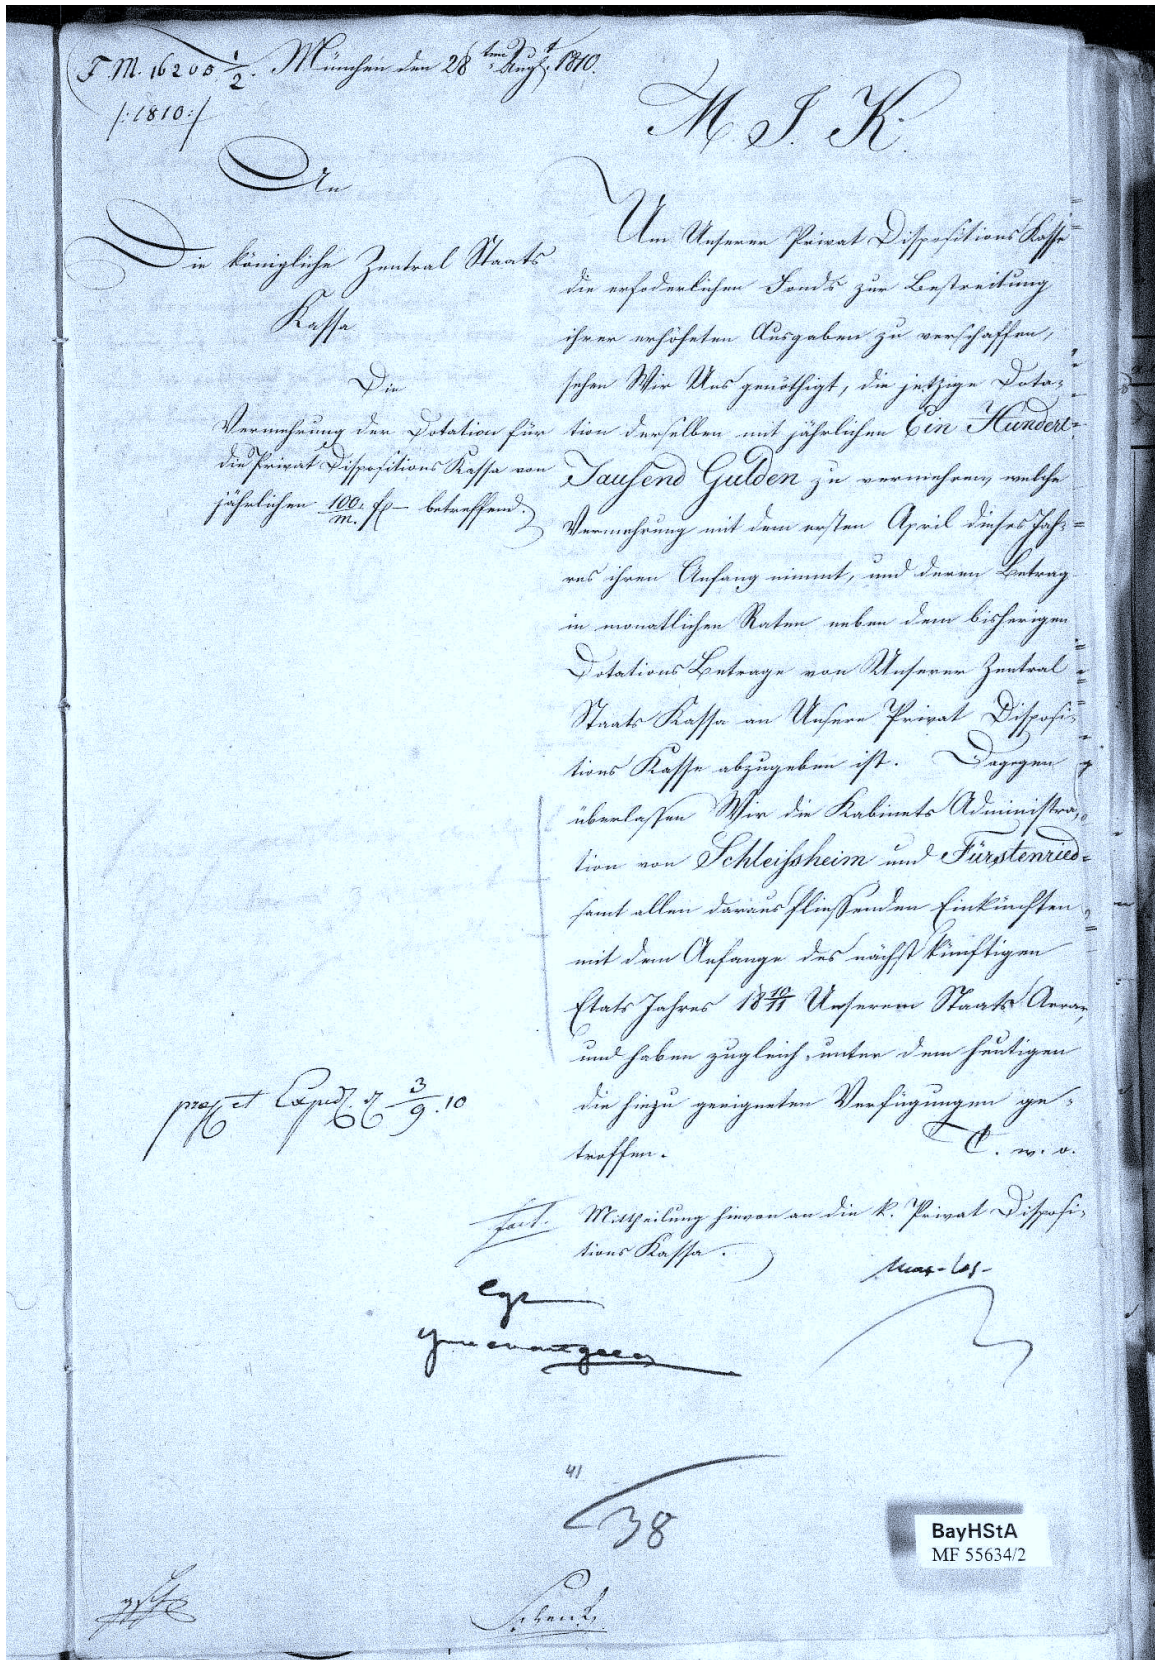 F. M. 16205 1/2. München den 28ten Augst. 1810.
/:1810:/
M. J. K.
An
Die königliche Zentral Staats
Kassa
Die
Vermehrung der Dotation für
die Privat Dispositions Kassa von
jährlichen 100/m. f – betreffend.
Um Unserer Privat Dispositions Kasse
die erfoderlichen Fonds zur Bestreitung
ihrer erhöheten Ausgaben zu verschaffen,
sehen Wir Uns genöthigt, die jetzige Dota-
tion derselben mit jährlichen Ein Hundert-
Tausend Gulden zu vermehren, welche
Vermehrung mit dem ersten April dieses Jah-
res ihren Anfang nimmt, und deren Betrag
in monatlichen Raten neben dem bisherigen
Dotations Betrage von Unserer Zentral
Staats Kassa an Unsere Privat Disposi-
tions Kasse abzugeben ist. Dagegen
überlassen Wir die Kabinets Administra-
tion von Schleissheim und Fürstenried
samt allen daraus fliessenden Einkünften
mit dem Anfange des nächst künftigen
Etats Jahres 1810/11 Unserem Staats Aerar,
und haben zugleich unter dem heutigen
die hiezu geeigneten Verfügungen ge-
troffen. w. o.
praes et Exped. d 3/9. 10
fact. Mittheilung hievon an die k. Privat Disposi-
tions Kassa.
41
38
Schenk
BayHStA
MF 55634/2